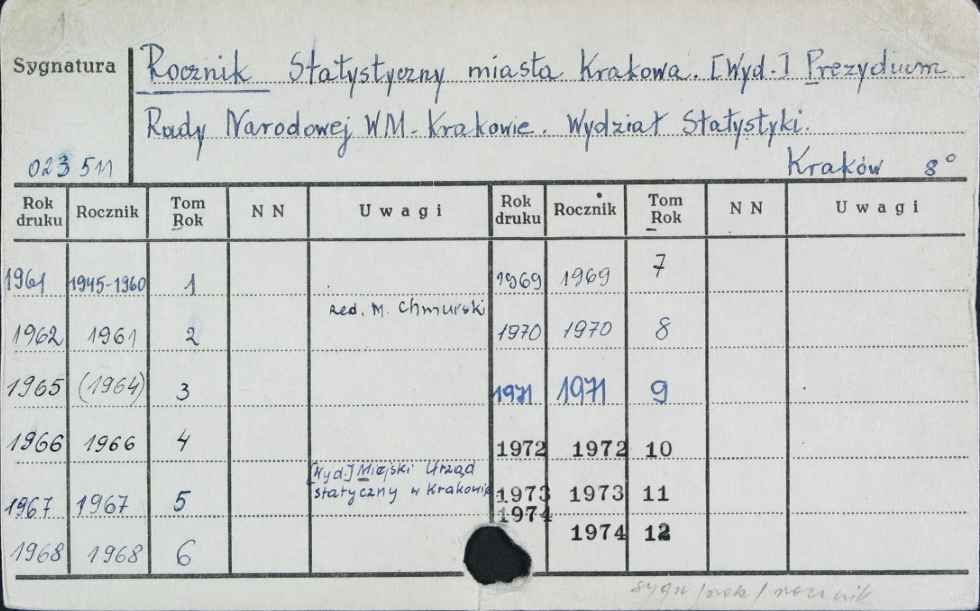 Sygnatura Rocznik Statystyczny miasta Krakowa. [Wyd.] Prezydium
Rady Narodowej WM. Krakowie. Wydział Statystyki.
023 511 Kraków 8°
Rok druku Rocznik Tom Rok N N Uwagi Rok druku Rocznik Tom Rok N N Uwagi
1961 1945-1960 1 1969 1969 7
red. M. Chmurski
1962 1961 2 1970 1970 8
1965 (1964) 3 1971 1971 9
1966 1966 4 1972 1972 10
[Wyd.] Miejski Urząd
statyczny w Krakowie
1967 1967 5 1973 1973 11
1974 1974 12
1968 1968 6
sygn/rok/rocznik